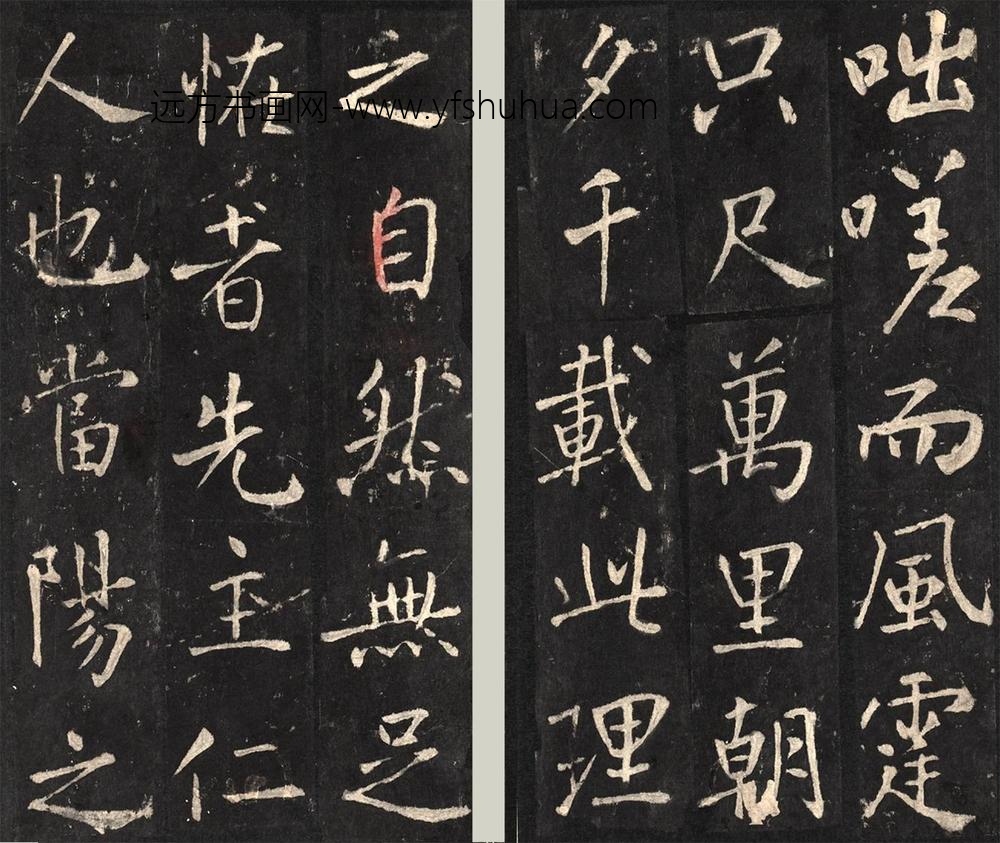 咄嗟而風霆
只尺萬里朝
夕千載此理
之自然無足
恠者先主仁
人也當陽之
远方书画网-www.yfshuhua.com